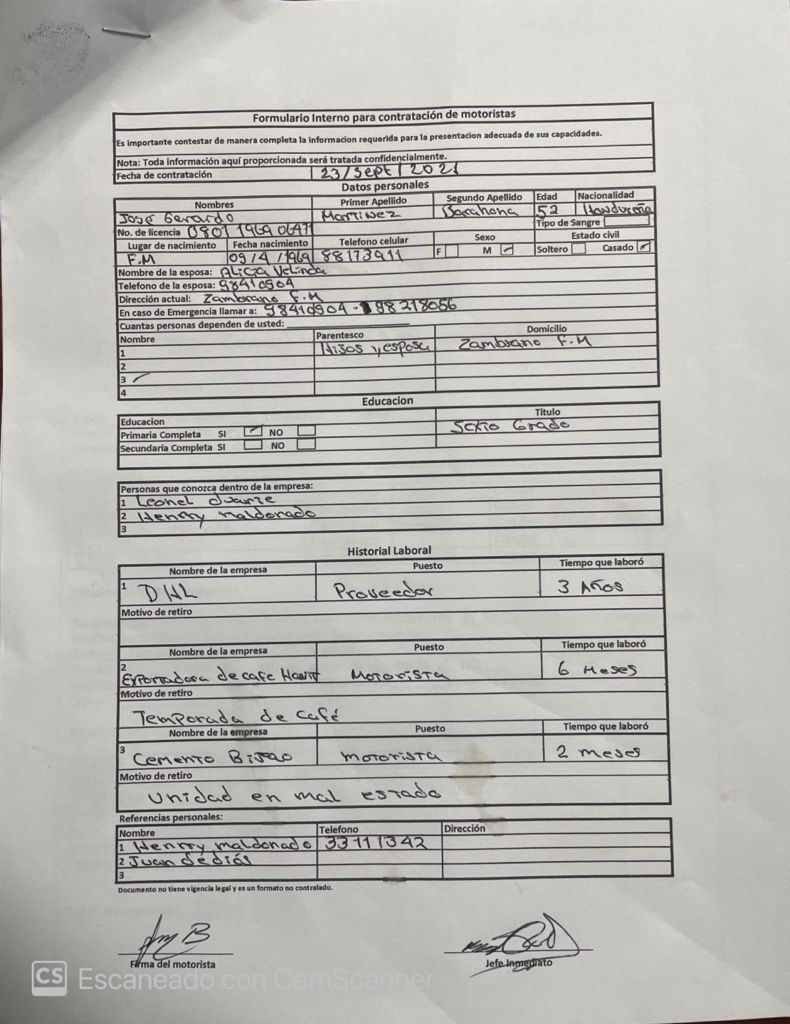 Formulario Interno para contratación de motoristas
Es importante contestar de manera completa la informacion requerida para la presentacion adecuada de sus capacidades.
Nota: Toda información aquí proporcionada será tratada confidencialmente.
Fecha de contratación 23/Sept/2021
Datos personales
Nombres Primer Apellido Segundo Apellido Edad Nacionalidad
José Gerardo Martinez Barahona 52 Hondureña
No. de licencia 0801 1969 Tipo de Sangre
Lugar de nacimiento Fecha nacimiento Telefono celular Sexo Estado civil
F.M 09/4/1969 88173911 F M Soltero Casado
Nombre de la esposa: Alicia
Telefono de la esposa: 98410904
Dirección actual: Zambrano F.M
En caso de Emergencia llamar a: 98410904 - 98218056
Cuantas personas dependen de usted:
Nombre Parentesco Domicilio
1 Hijos y esposa Zambrano F.M
2
3
4
Educacion
Educacion Titulo
Primaria Completa SI NO Sexto Grado
Secundaria Completa SI NO
Personas que conozca dentro de la empresa:
1 Leonel duarte
2 Henrry maldonado
3
Historial Laboral
Nombre de la empresa Puesto Tiempo que laboró
1 DHL Proveedor 3 Años
Motivo de retiro
Nombre de la empresa Puesto Tiempo que laboró
2 Exportadora de cafe Motorista 6 Meses
Motivo de retiro
Temporada de Café
Nombre de la empresa Puesto Tiempo que laboró
3 Cemento Bijao motorista 2 meses
Motivo de retiro
Unidad en mal estado
Referencias personales:
Nombre Telefono Dirección
1 Henrry maldonado 33111342
2 Juan dediós
3
Documento no tiene vigencia legal y es un formato no contralado.
Firma del motorista Jefe Inmediato
CS Escaneado con CamScanner